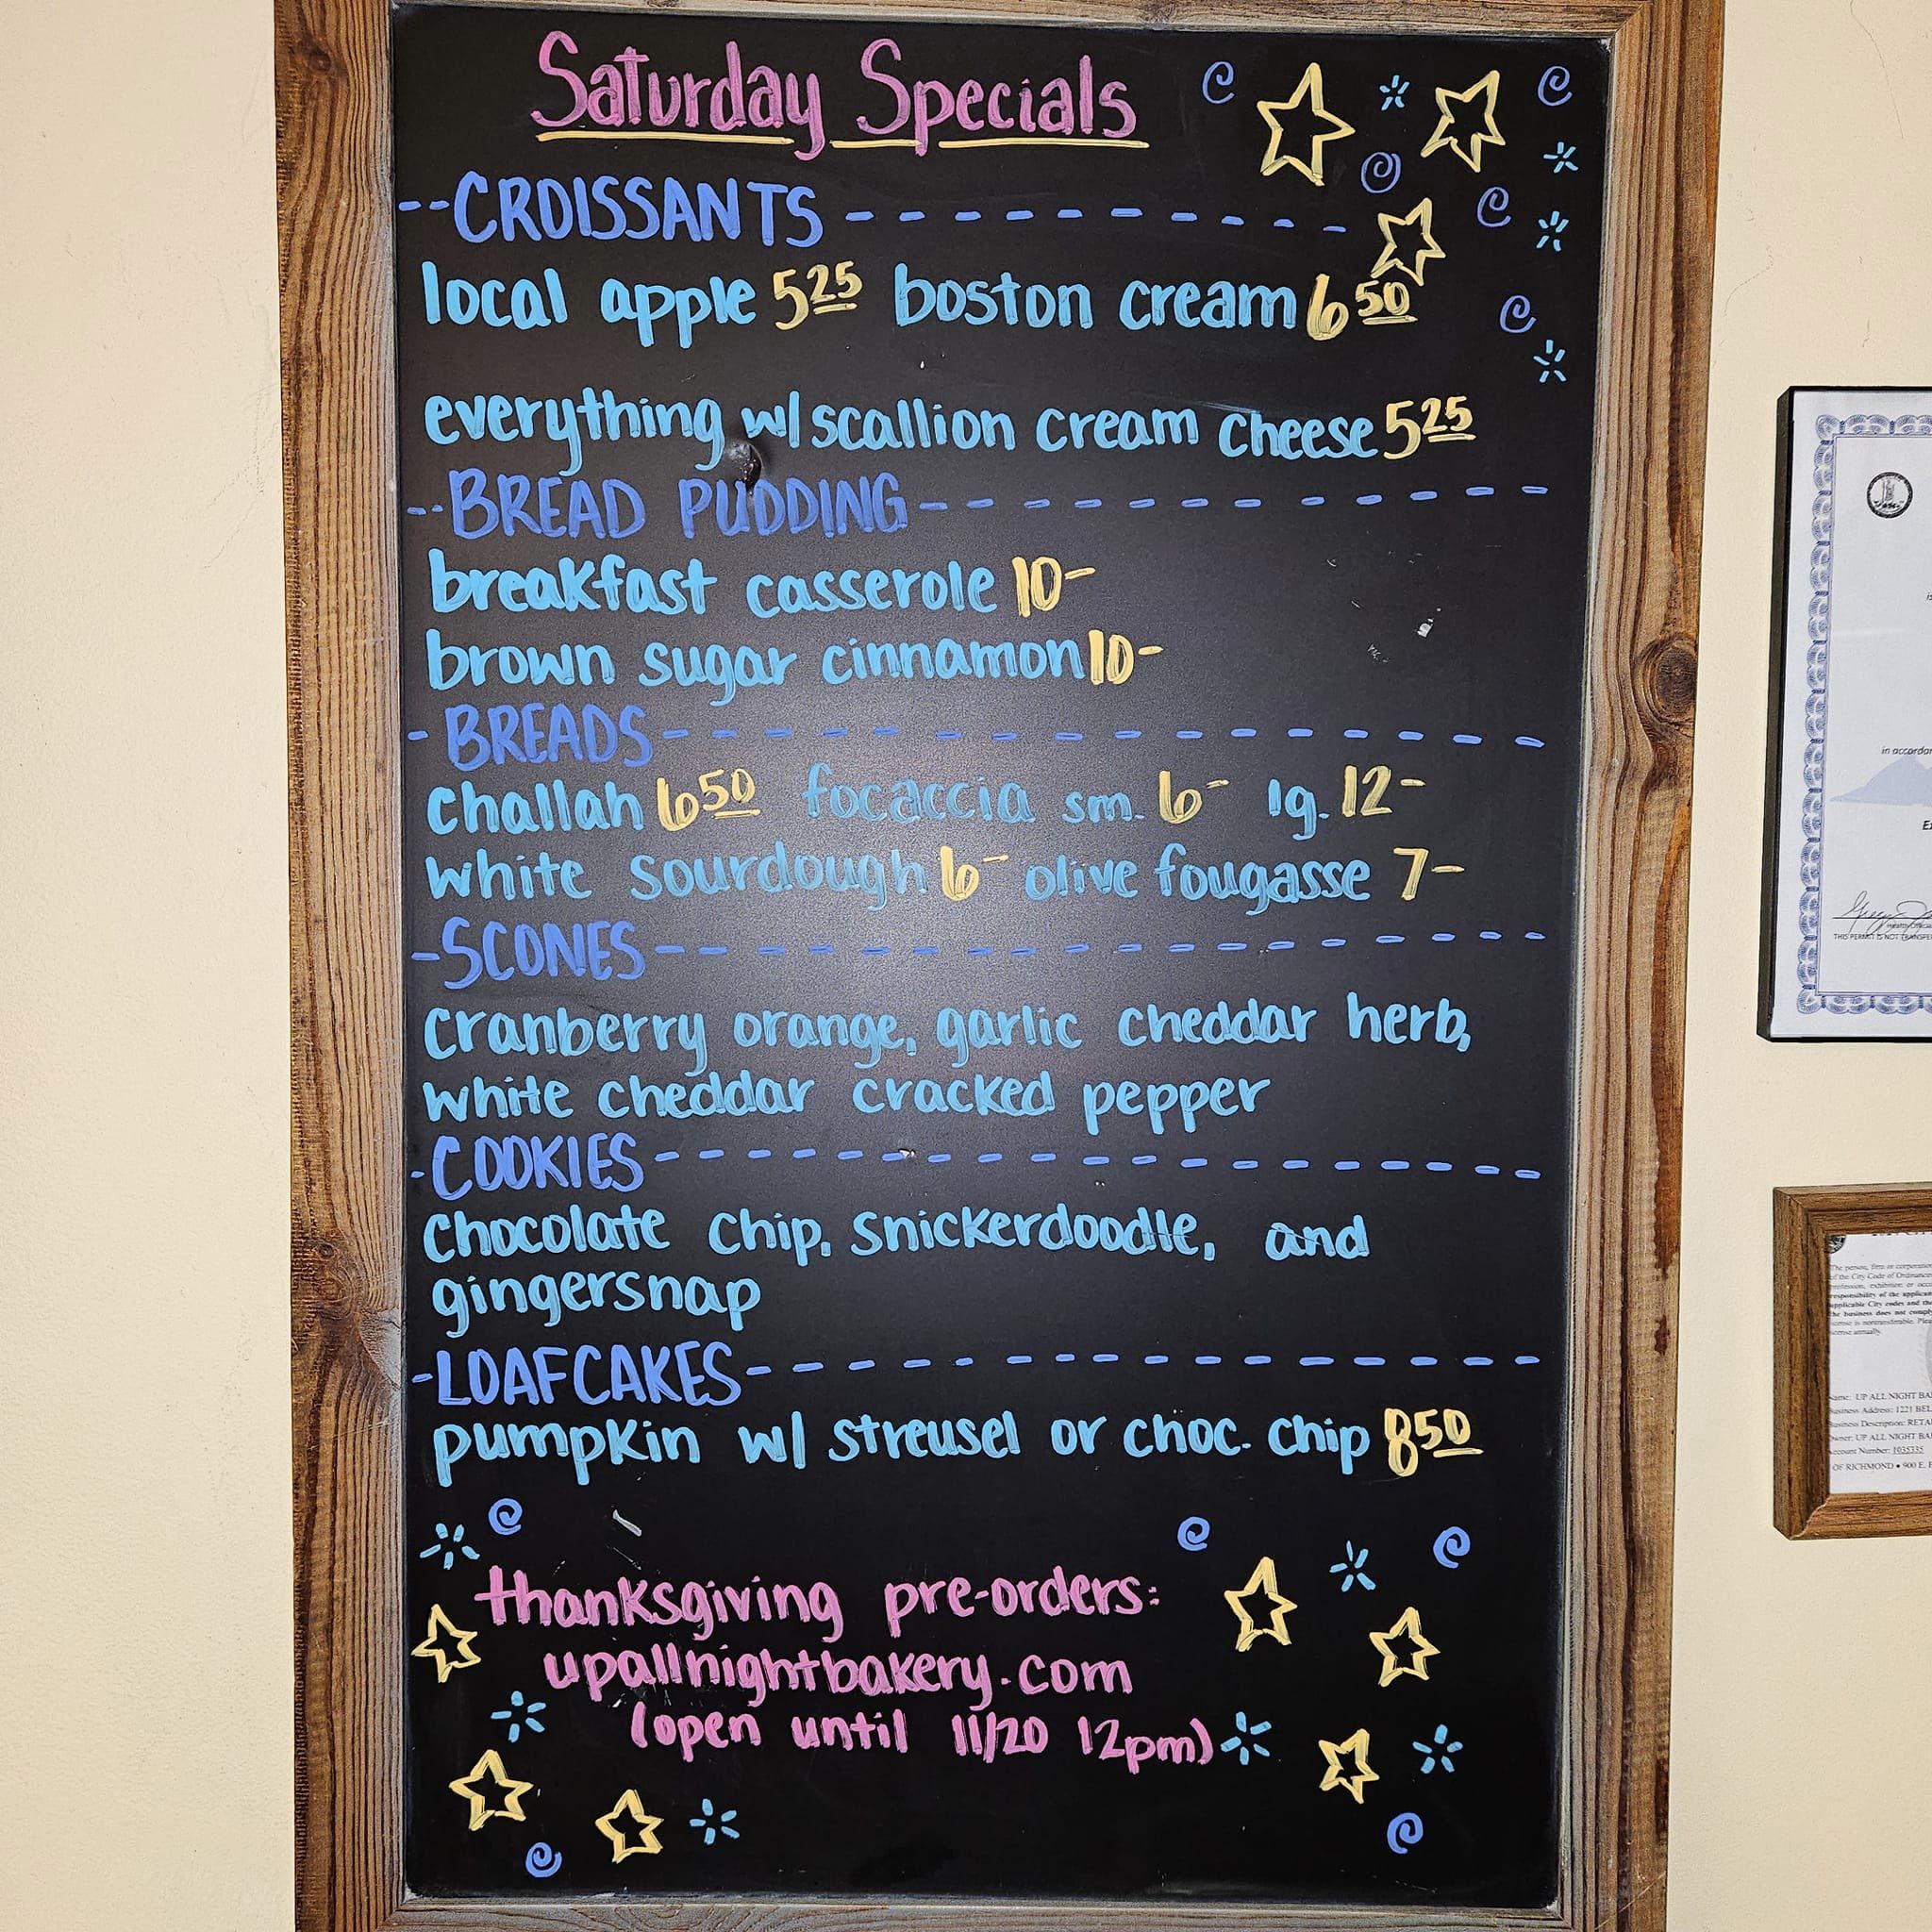 Saturday Specials
--CROISSANTS
local apple 5 25 boston cream 6 50
everything w/ scallion cream cheese 5 25
--BREAD PUDDING
breakfast casserole 10-
brown sugar cinnamon 10-
-BREADS
challah 6 50 focaccia sm. 6- lg. 12-
white sourdough 6- olive fougasse 7-
-SCONES
cranberry orange, garlic cheddar herb,
white cheddar cracked pepper
-COOKIES
chocolate chip, snickerdoodle, and
gingersnap
-LOAFCAKES
pumpkin w/ streusel or choc. chip 8 50
thanksgiving pre-orders:
upallnightbakery.com
(open until 11/20 12pm)
in accordan
THIS PERMIT IS NOT TRANSFE
The person, firm or corporation
of the City Code of Ordinan
responsibility of the applican
applicable City codes and the
the business does not comply
license annually.
Name: UP ALL NIGHT BA
Business Address: 1221 BEL
Business Description: RETA
Owner: UP ALL NIGHT BA
Account Number: 1035335
OF RICHMOND • 900 E.